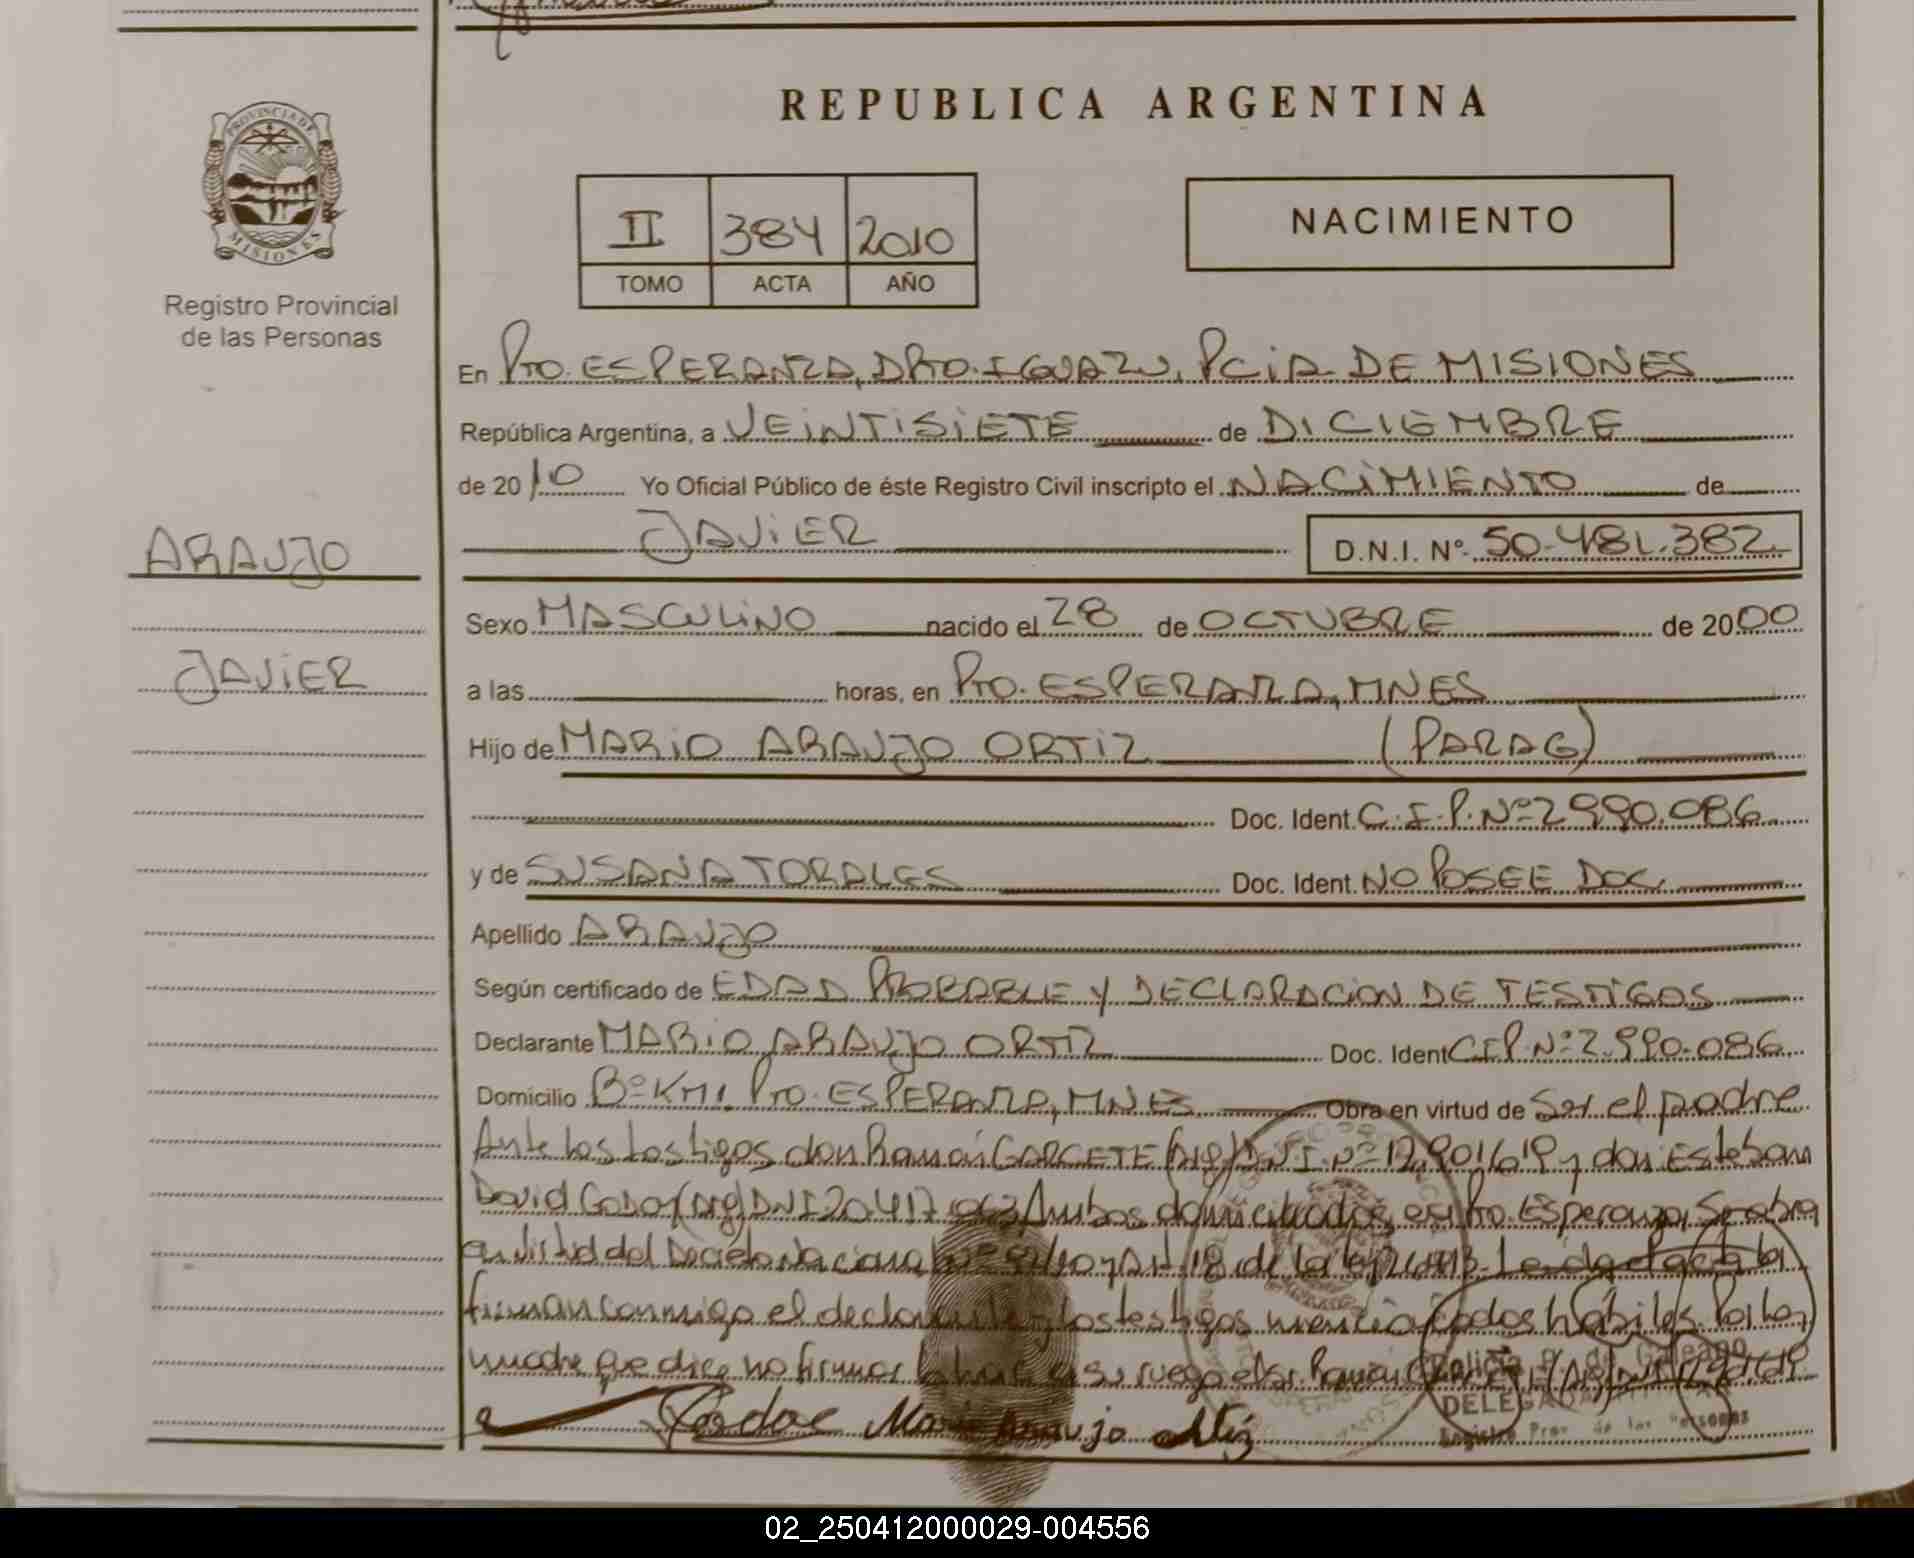 REPUBLICA ARGENTINA
PROVINCIA DE
MISIONES
Registro Provincial
de las Personas
II 384 2010
TOMO ACTA AÑO
NACIMIENTO
En Pto. ESPERANZA, DPTO. IGUAZU, PCiA DE MISIONES
República Argentina, a VEiNTiSiETE de DICIEMBRE
de 2010 Yo Oficial Público de éste Registro Civil inscripto el NACiMIENTO de
JAViER D.N.I. Nº 50.481.382
ARAUJO
JAViER
Sexo MASCULiNO nacido el 28 de OCTUBRE de 2000
a las horas, en Pto. ESPERANZA, MNES
Hijo de MARiO ARAUJO ORTiZ (PARAG)
Doc. Ident. C.I.P. Nº 2.990.086
y de SUSANA TORALES Doc. Ident. NO POSEE DOC.
Apellido ARAUJO
Según certificado de EDAD PROBABLE Y DECLARACiON DE TESTiGOS
Declarante MARiO ARAUJO ORTIZ Doc. Ident C.I.P. Nº 2.990.086
Domicilio Bº KM1 Pto. ESPERANZA, MNES Obra en virtud de Ser el padre
Ante los testigos don Ramón GARCETE (Arg) D.N.I. Nº 17.901.619 y don Esteban
David GODOY (Arg) DNI 20.417. Ambos domiciliados en Pto. Esperanza, Se obra
en virtud del Decreto Nacional Nº 92/10 y Art. 18 de la Ley 26413. Leída el acta la
firman conmigo el declarante y los testigos mencionados hábiles. Por la
madre que dice no firmar lo hace a su ruego el Sr. Ramón
DELEGADA
Registro Prov. de las Personas
Mario Araujo Ortiz
02_250412000029-004556